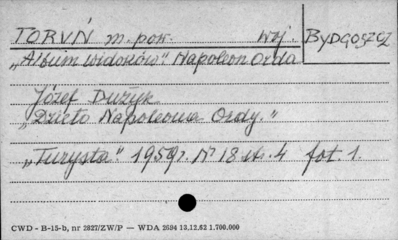 TORUŃ m. pow. woj. BYDGOSZCZ
„Album widoków" Napoleon Orda
Józef Dużyk
„Dzieło Napoleona Ordy."
„Turysta" 1959r. Nr 18 st. 4 fot. 1.
CWD - B-15-b, nr 2827/ZW/P — WDA 2694 13.12.62 1.700.000